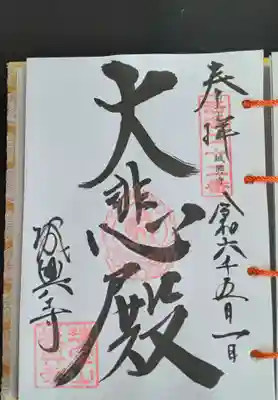 奉拝
令和六年五月一日
大悲殿
城興寺